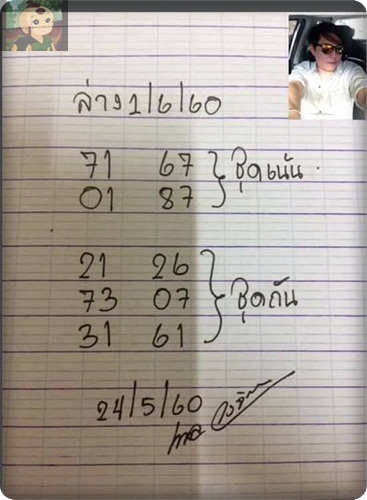 ล่าง 1/6/60
71 67
01 87
ชุดเน้น
21 26
73 07
31 61
ชุดกัน
24/5/60